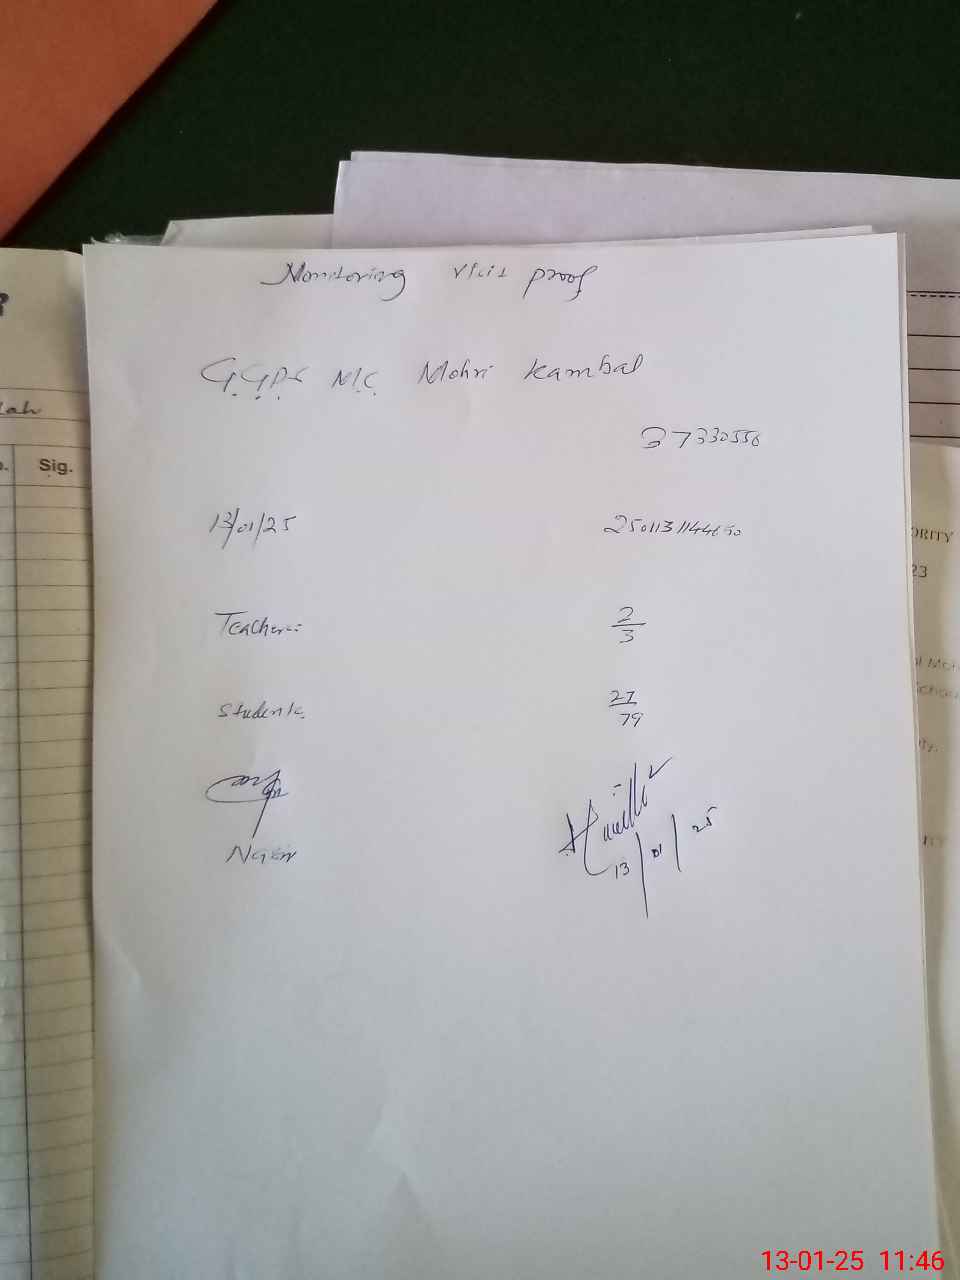 Monitoring visit proof
G.G.P.S M.C. Mohri Kambal
37330550
13/01/25 250113114450
Teachers 2/3
Students 27/79
13/01/25
Sig.
lah
ORITY
23
13-01-25 11:46